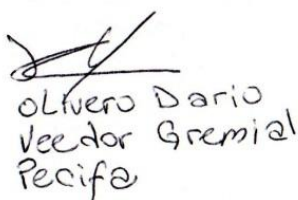 oLivero Dario
Veedor Gremial
Pecifa